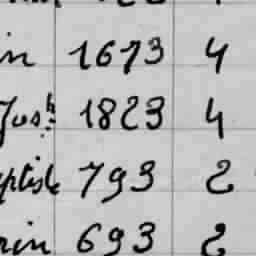 in 1673 4
Jos.h 1823 4
ptiste 793 2
rin 693 2